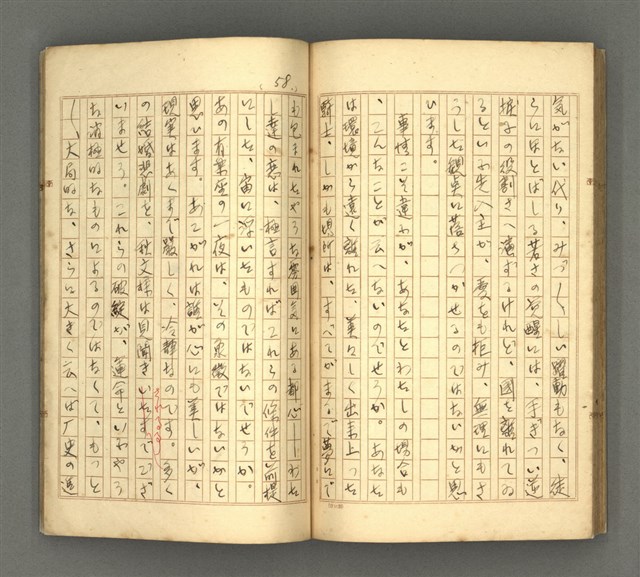 気がない代り、みづ〳〵しい躍動もなく、徒
らにほとばしる若さの覚醒には、手きつい道
振子の役割さへ演ずるけれど、國を離れてゐ
るといふ先入主が、愛をも拒み、無理にもさ
うした観点に落ちつかせるのではないかと思
います。
事情こそ違わが、あなたとわたしの場合も
、こんなことが云へないのでせうか。あなた
は環境から遠く離れた、美々しく出来上つた
騎士、しかも場所は、すべてがまるで夢にで
(58.)
も包まれたやうな雰囲気にある都心――わた
し達の恋は、極言すればこれらの條件を前提
にした、宙に浮いたものではないでせうか。
あの有楽座の一夜は、その象徴ではないかと
思います。あこがれは誰が心にも美しいが、
現実はあくまで厳しく、冷静なのです。多く
の結婚悲劇を、秋文様は見聞きいたすでござ
いませう。これらの破綻が、運命といふやう
な消極的なものによるのではなくて、もつと
〳〵大局的な、さらに大きく云へば歴史の過